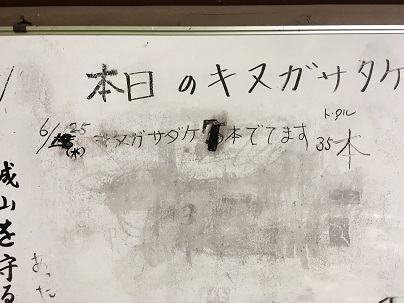 本日のキヌガサタケ
6/25
(水)
キヌガサダケ7本でてます
トータル
35本
成山を守る
あった